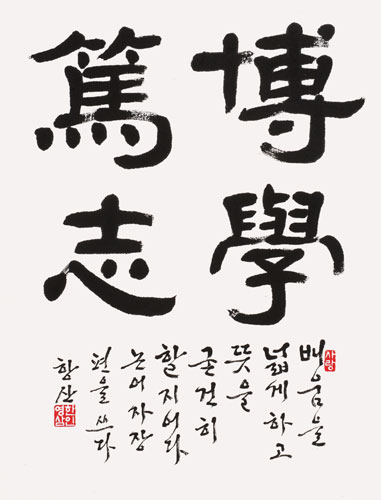 博學
篤志
사랑
배움을
넓게 하고
뜻을
굳건히
할지어다
논어 자장
편을 쓰다
항산